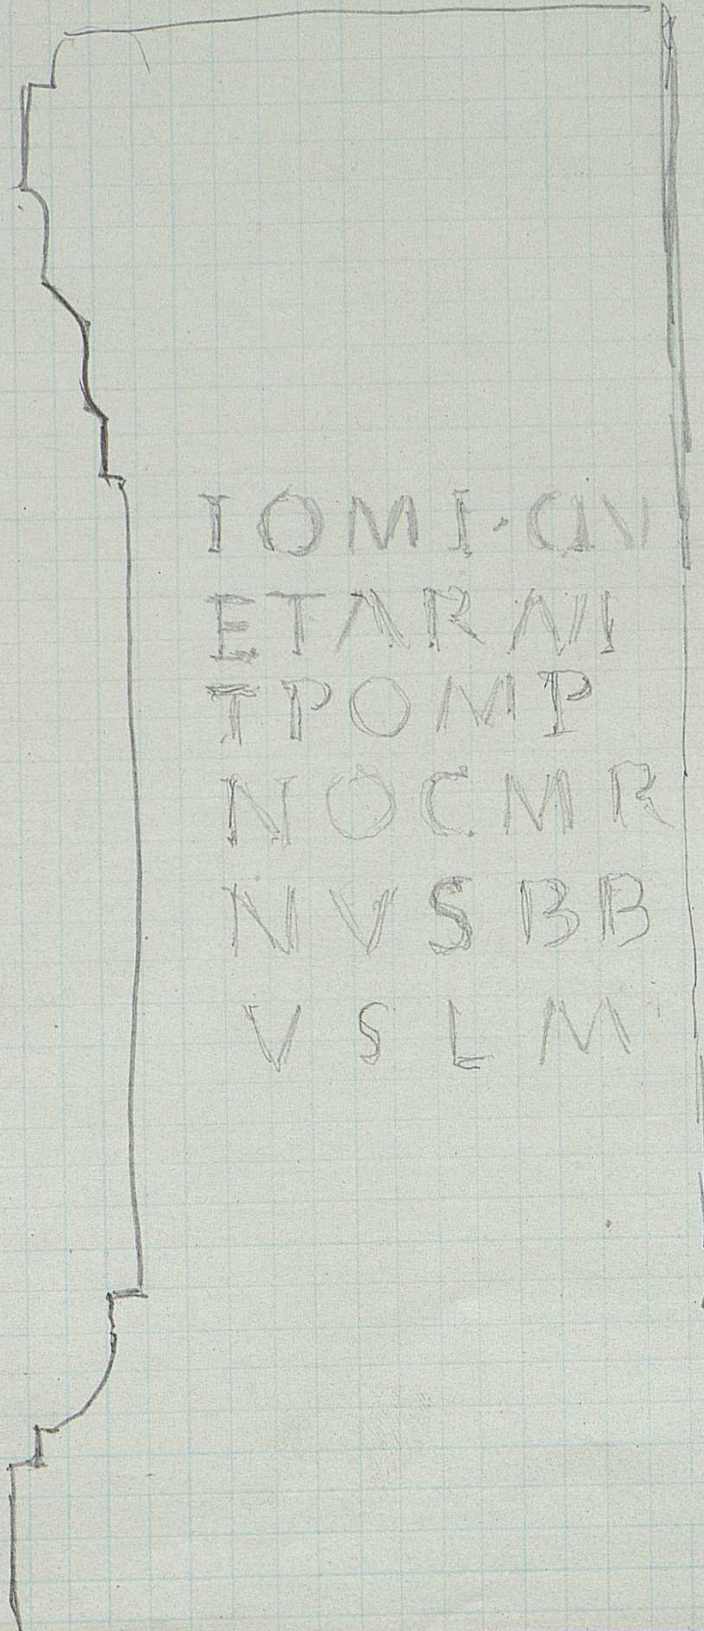 IOMI·CIV
ETARNI
TPOMP
NOCMR
NVSBB
VSLM